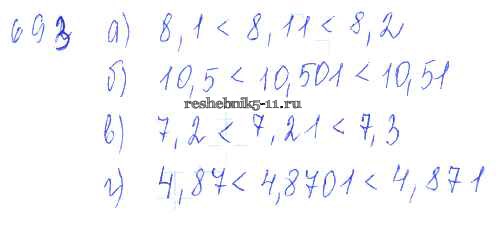 693 а) 8,1 < 8,11 < 8,2
б) 10,5 < 10,501 < 10,51
reshebnik5-11.ru
в) 7,2 < 7,21 < 7,3
г) 4,87 < 4,8701 < 4,871